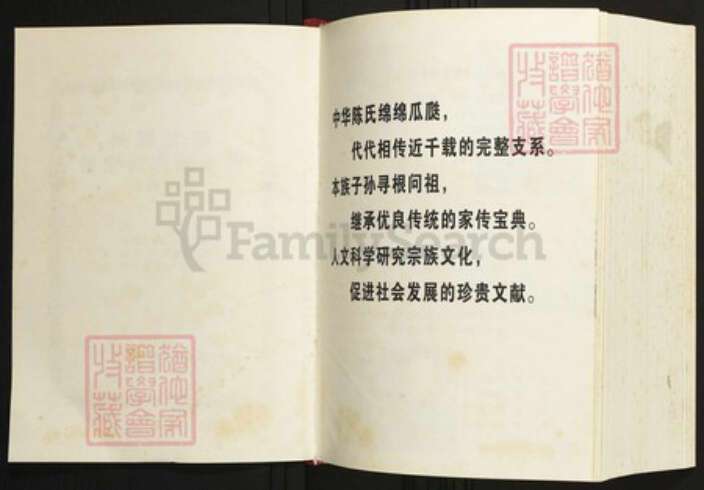 中华陈氏绵绵瓜瓞，
代代相传近千载的完整支系。
本族子孙寻根问祖，
继承优良传统的家传宝典。
人文科学研究宗族文化，
促进社会发展的珍贵文献。
FamilySearch